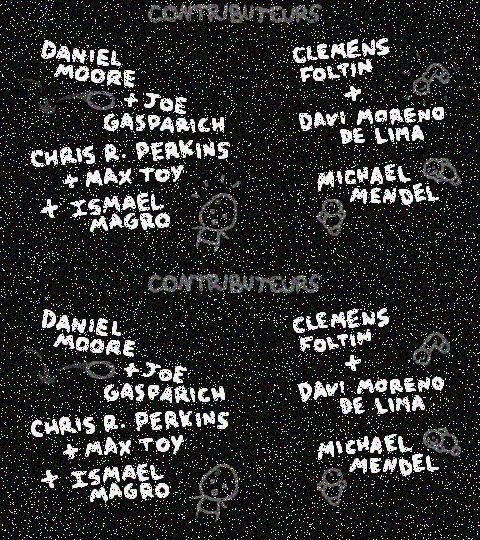 CONTRIBUTEURS
DANIEL
MOORE
+ JOE
GASPARICH
CHRIS R. PERKINS
+ MAX TOY
+ ISMAEL
MAGRO
CLEMENS
FOLTIN
+
DAVI MORENO
DE LIMA
MICHAEL
MENDEL
CONTRIBUTEURS
DANIEL
MOORE
+ JOE
GASPARICH
CHRIS R. PERKINS
+ MAX TOY
+ ISMAEL
MAGRO
CLEMENS
FOLTIN
+
DAVI MORENO
DE LIMA
MICHAEL
MENDEL